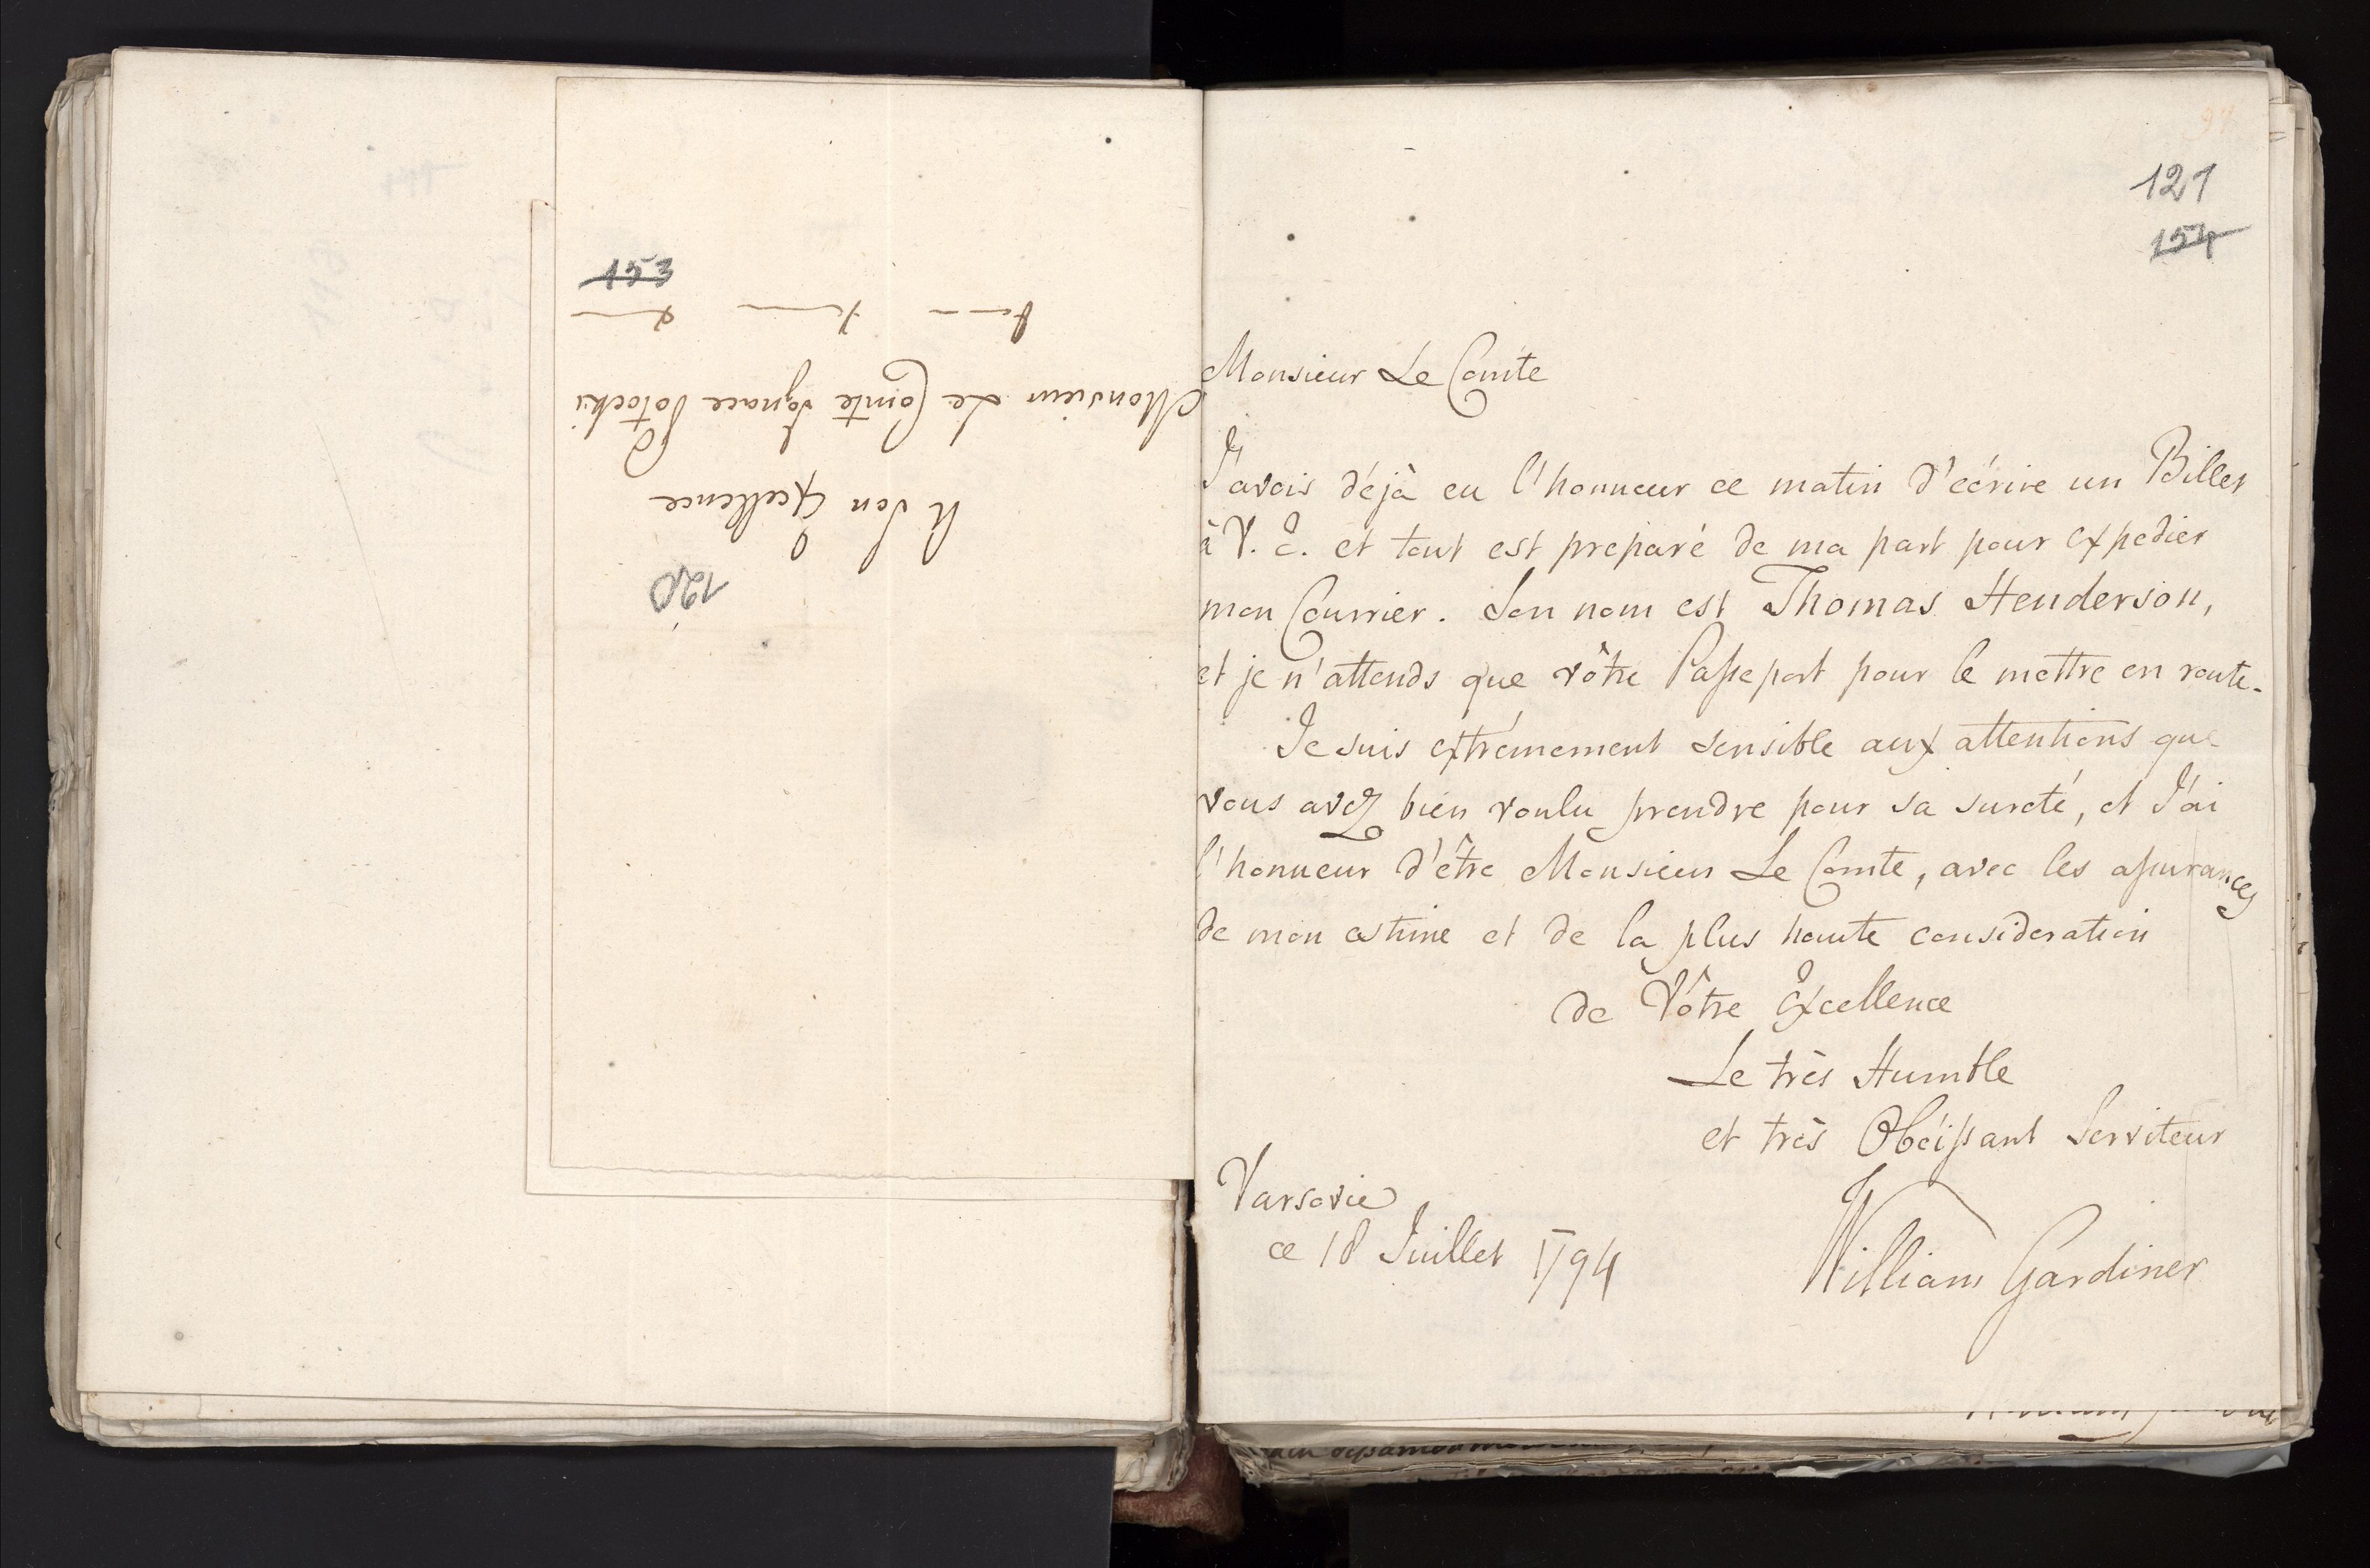 120
A Son Excellence
Monsieur Le Comte Ignace Potocki
153
121
154
Monsieur Le Comte
J'avois déjà eu l'honneur ce matin d'écrire un Billet
à V. E. et tout est preparé de ma part pour expedier
mon Courrier. Son nom est Thomas Henderson,
et je n'attends que vôtre Passeport pour le mettre en route.
Je suis extrémement sensible aux attentions que
vous avez bien voulu prendre pour sa sureté, et J'ai
l'honneur d'être Monsieur Le Comte, avec les assurances
de mon estime et de la plus haute consideration
de Vôtre Excellence
Le très Humble
et très Obéissant Serviteur
Varsovie
ce 18 Juillet 1794
William Gardiner